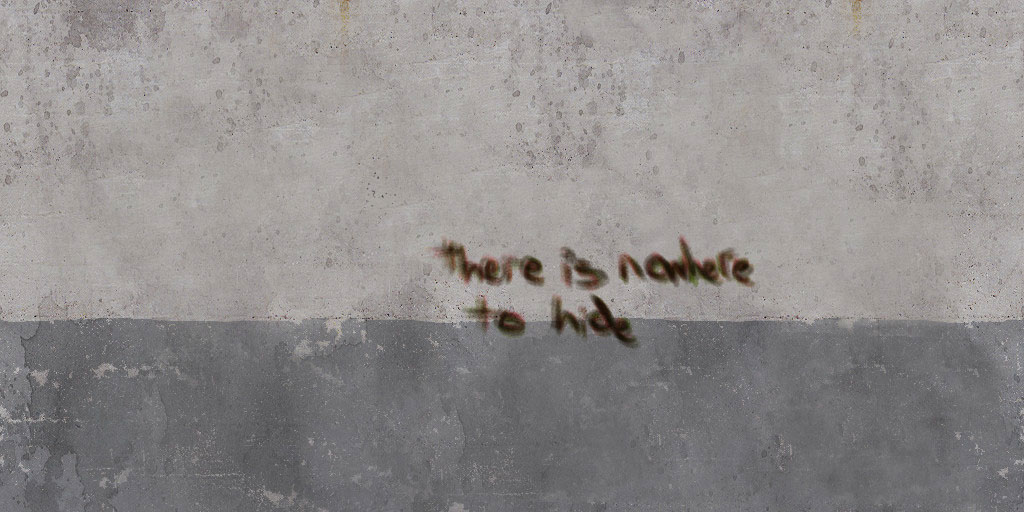 there is nowhere
to hide